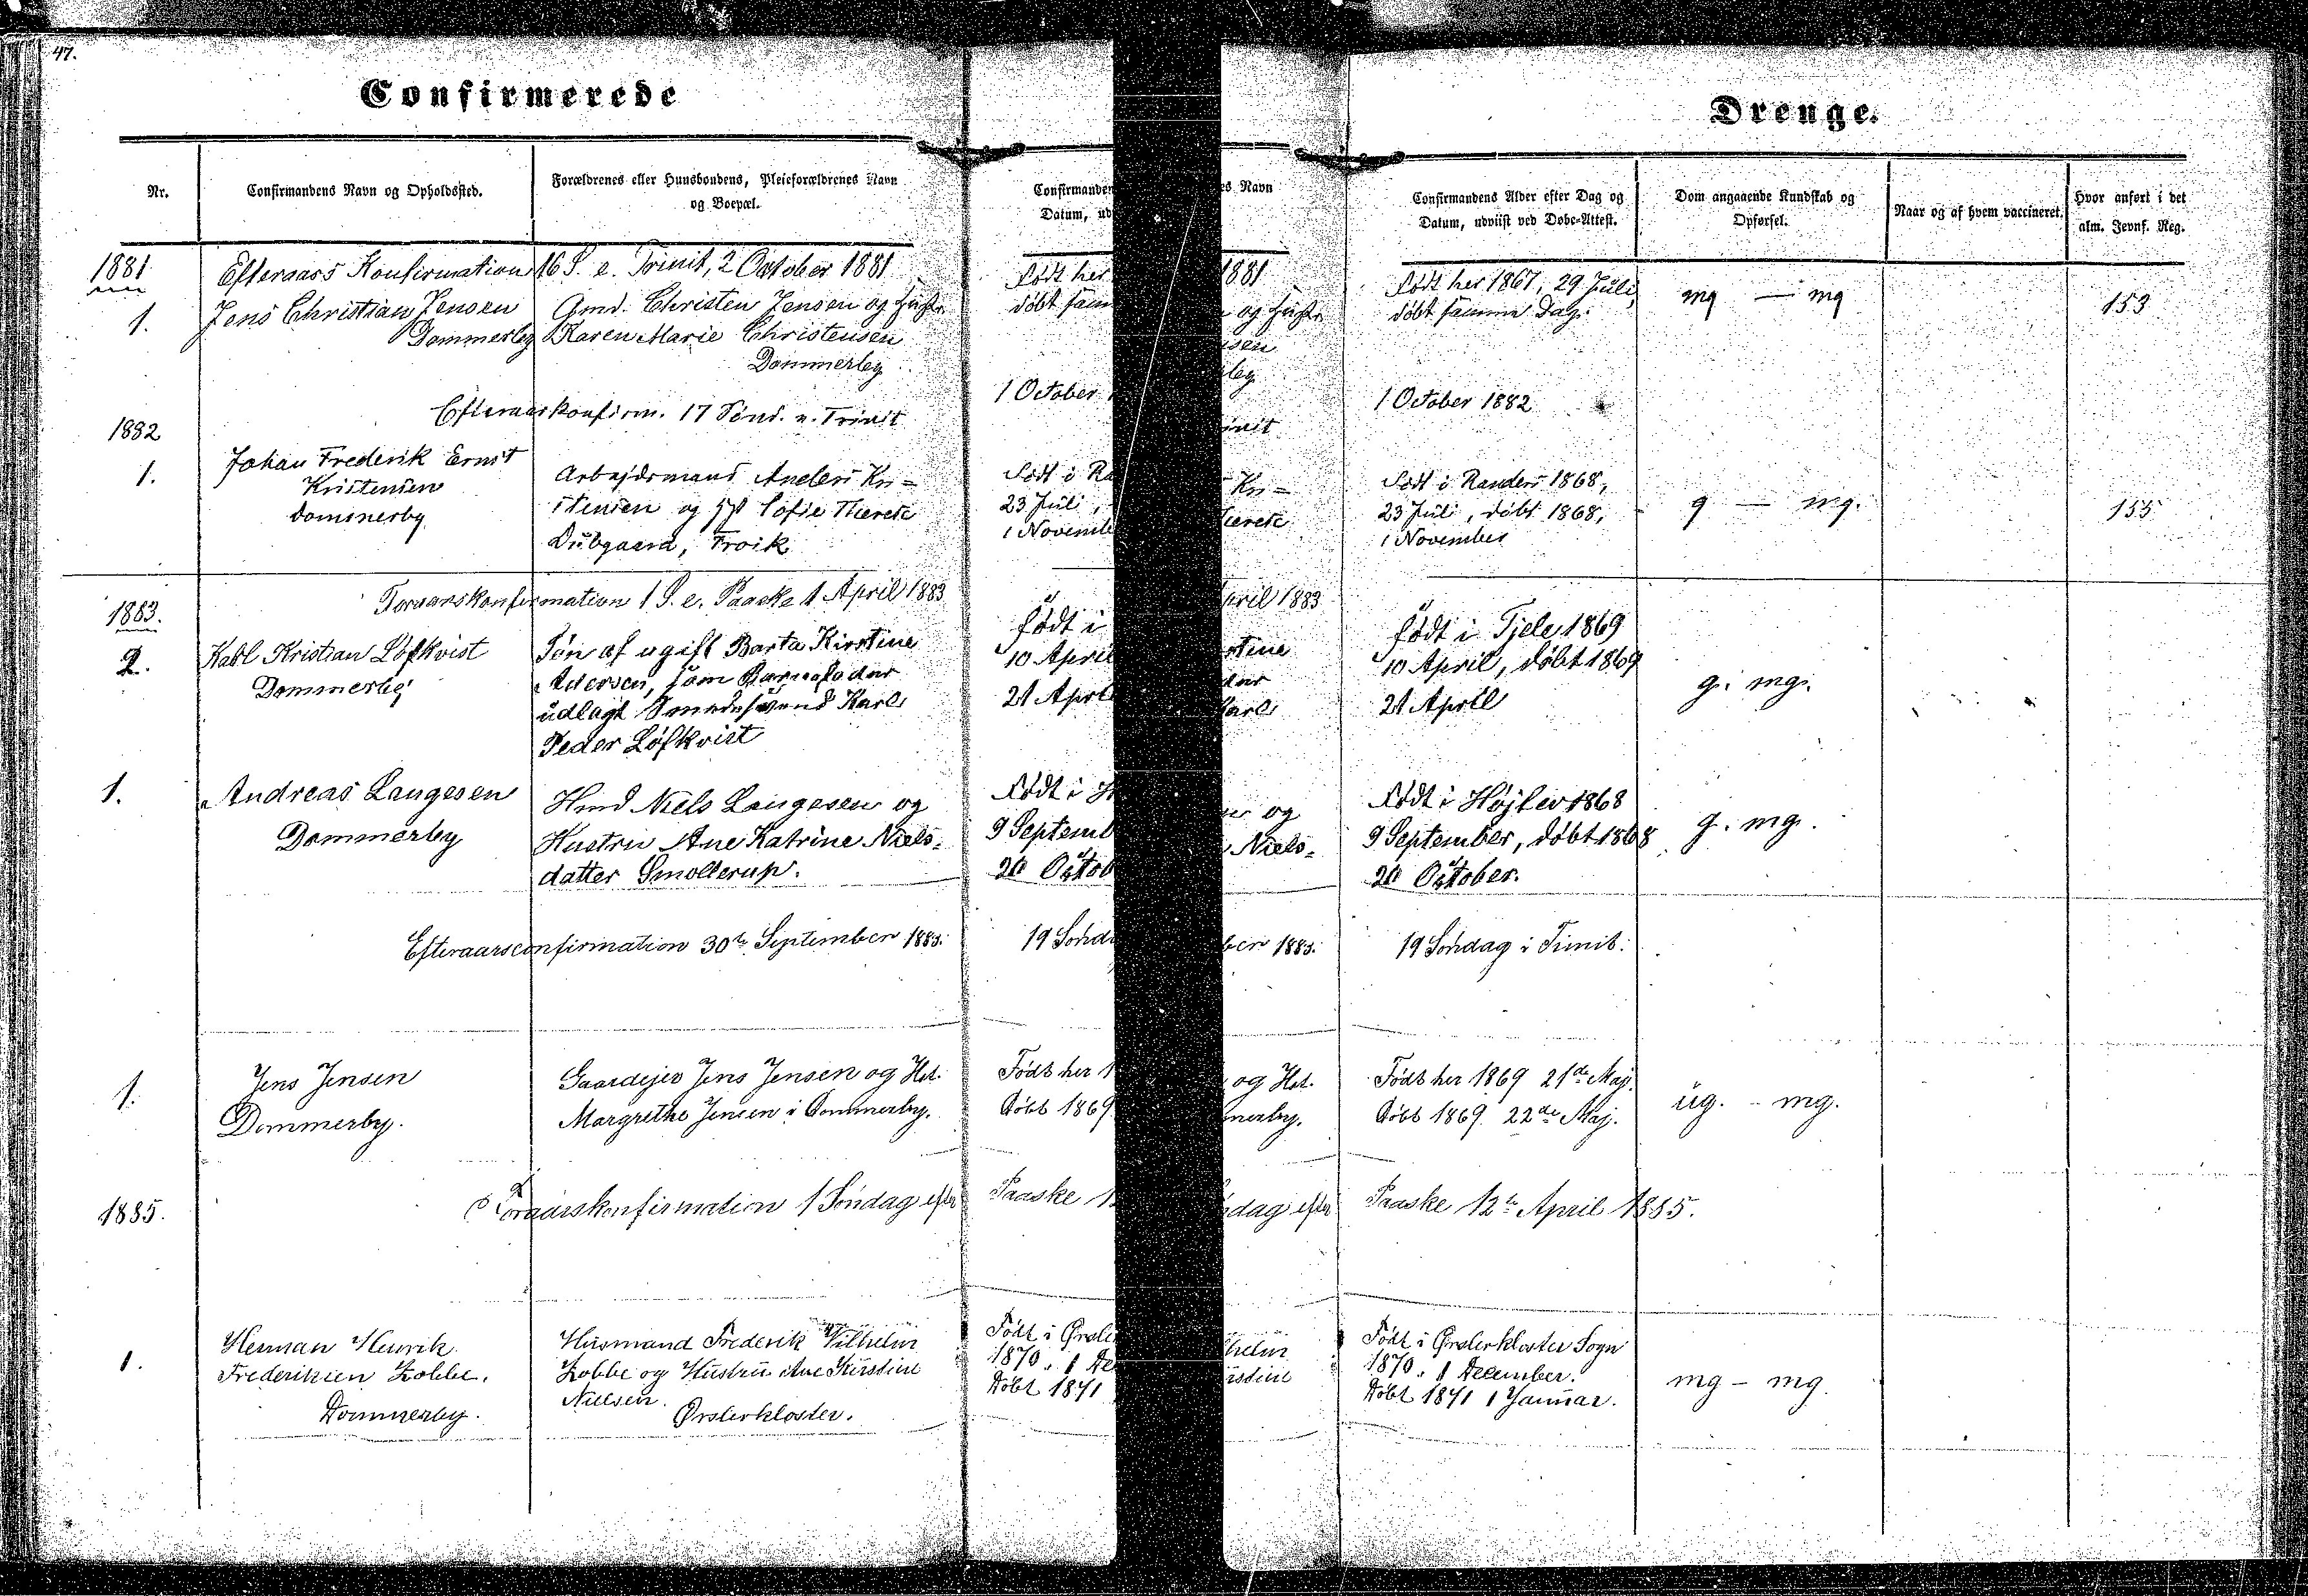 47.
Confirmerede
Drenge.
Nr.
Confirmandens Navn og Opholdssted.
Forældrenes eller Huusbondens, Pleieforældrenes Navn
og Boepæl.
Confirmandens Alder efter Dag og
Datum, udviist ved Døbe-Attest.
Dom angaaende Kundskab og
Opførsel.
Naar og af hvem vaccineret.
Hvor anført i det
alm. Jevnf. Reg.
1881
Efteraars Konfirmation 16 S. e. Trinit, 2 October 1881
1.
Jens Christian Jensen
Dommerby
Gmd. Christen Jensen og Hustr.
Karen Marie Christensen
Dommerby
Født her 1867, 29 Juli,
døbt samme Dag.
mg — mg
153
1882
Efteraarskonfirm. 17 Sönd. e. Trinit
1 October 1882
1.
Johan Frederik Ernst
Kristensen
Dommerby
Arbejdsmand Anders Kri-
stensen og Hst Sofie
Dübgaard,
Født i Randers 1868,
23 Juli, døbt 1868,
1 November
g — mg.
155
1883.
Foraarskonfirmation 1 S. e. Paaske 1 April 1883
2.
Karl Kristian Löfkvist
Dommerby
Søn af ugift Barta Kirstine
Andersen, som Barnefader
udlagt Smedesvend Karl
Peder Löfkvist
født i Tjele 1869
10 April, døbt 1869
21 April
g. mg.
1.
Andreas Laugesen
Dommerby
Hmd Niels Laugesen og
Hustru Ane Katrine Niels-
datter Smollerup.
Født i Højslev 1868
9 September, døbt 1868
20 October.
g. mg.
Efteraarsconfirmation 30te September 1883.
19 Söndag i Trinit.
1.
Jens Jensen
Dommerby.
Gaardejer Jens Jensen og Hst.
Margrethe Jensen i Dommerby.
Født her 1869 21de Maj.
Døbt 1869 22de Maj.
ug. - mg.
1885.
Foraarskonfirmation 1 Söndag efter
Paaske 12te April 1885.
1.
Herman Henrik
Frederiksen Kobbe.
Dommerby.
Husmand Frederik Vilhelm
Kobbe og Hustru Ane Kirstine
Nielsen.
Ørslevkloster.
Født i Ørslevkloster Sogn
1870. 1 December.
Døbt 1871 1 Januar.
mg - mg.